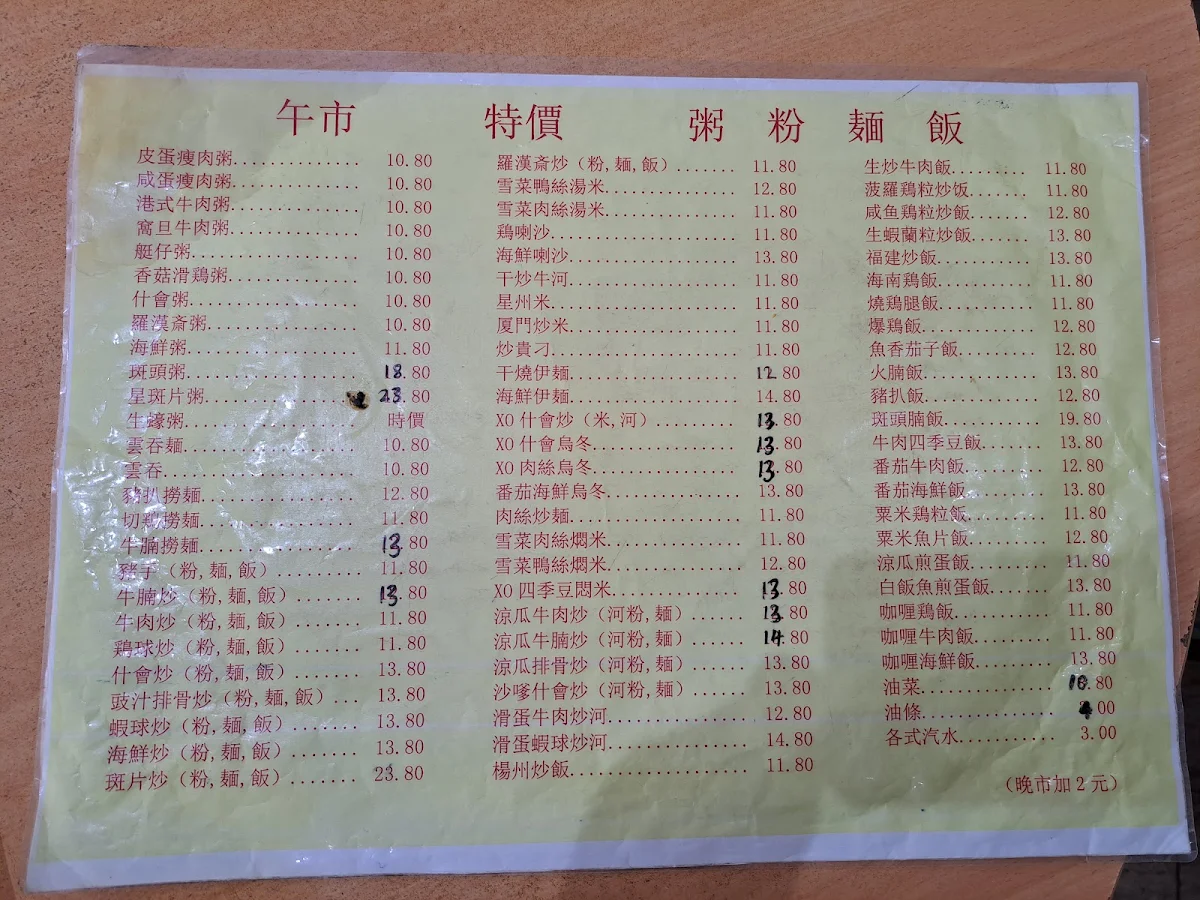 午市 特價 粥 粉 麵 飯
皮蛋瘦肉粥.............. 10.80
咸蛋瘦肉粥.............. 10.80
港式牛肉粥.............. 10.80
窩旦牛肉粥.............. 10.80
艇仔粥.................. 10.80
香菇滑鶏粥.............. 10.80
什會粥.................. 10.80
羅漢斎粥................ 10.80
海鮮粥.................. 11.80
斑頭粥.................. 18.80
星斑片粥................ 23.80
生蠔粥.................. 時價
雲吞麺.................. 10.80
雲吞.................... 10.80
豬扒撈麺................ 12.80
切鶏撈麺................ 11.80
牛腩撈麺................ 13.80
豬手（粉,麺,飯）......... 11.80
牛腩炒（粉,麺,飯）....... 13.80
牛肉炒（粉,麺,飯）....... 11.80
鶏球炒（粉,麺,飯）....... 11.80
什會炒（粉,麺,飯）....... 13.80
豉汁排骨炒（粉,麺,飯）... 13.80
蝦球炒（粉,麺,飯）....... 13.80
海鮮炒（粉,麺,飯）....... 13.80
斑片炒（粉,麺,飯）....... 23.80
羅漢斎炒（粉,麺,飯）....... 11.80
雪菜鴨絲湯米.............. 12.80
雪菜肉絲湯米.............. 11.80
鶏喇沙.................... 11.80
海鮮喇沙.................. 13.80
干炒牛河.................. 11.80
星州米.................... 11.80
厦門炒米.................. 11.80
炒貴刁.................... 11.80
干燒伊麺.................. 12.80
海鮮伊麺.................. 14.80
XO 什會炒（米,河）......... 13.80
XO 什會烏冬............... 13.80
XO 肉絲烏冬............... 13.80
番茄海鮮烏冬.............. 13.80
肉絲炒麺.................. 11.80
雪菜肉絲燜米.............. 11.80
雪菜鴨絲燜米.............. 12.80
XO 四季豆悶米............. 13.80
涼瓜牛肉炒（河粉,麺）...... 13.80
涼瓜牛腩炒（河粉,麺）...... 14.80
涼瓜排骨炒（河粉,麺）...... 13.80
沙嗲什會炒（河粉,麺）...... 13.80
滑蛋牛肉炒河.............. 12.80
滑蛋蝦球炒河.............. 14.80
楊州炒飯.................. 11.80
生炒牛肉飯......... 11.80
菠羅鶏粒炒饭....... 11.80
咸鱼鶏粒炒飯....... 12.80
生蝦蘭粒炒飯....... 13.80
福建炒飯........... 13.80
海南鶏飯........... 11.80
燒鶏腿飯........... 11.80
爆鶏飯............. 12.80
魚香茄子飯......... 12.80
火腩飯............. 13.80
豬扒飯............. 12.80
斑頭腩飯........... 19.80
牛肉四季豆飯....... 13.80
番茄牛肉飯......... 12.80
番茄海鮮飯......... 13.80
粟米鶏粒飯......... 11.80
粟米魚片飯......... 12.80
涼瓜煎蛋飯......... 11.80
白飯魚煎蛋飯....... 13.80
咖喱鶏飯........... 11.80
咖喱牛肉飯......... 11.80
咖喱海鮮飯......... 13.80
油菜............... 10.80
油條............... 4.00
各式汽水........... 3.00
（晚市加 2 元）